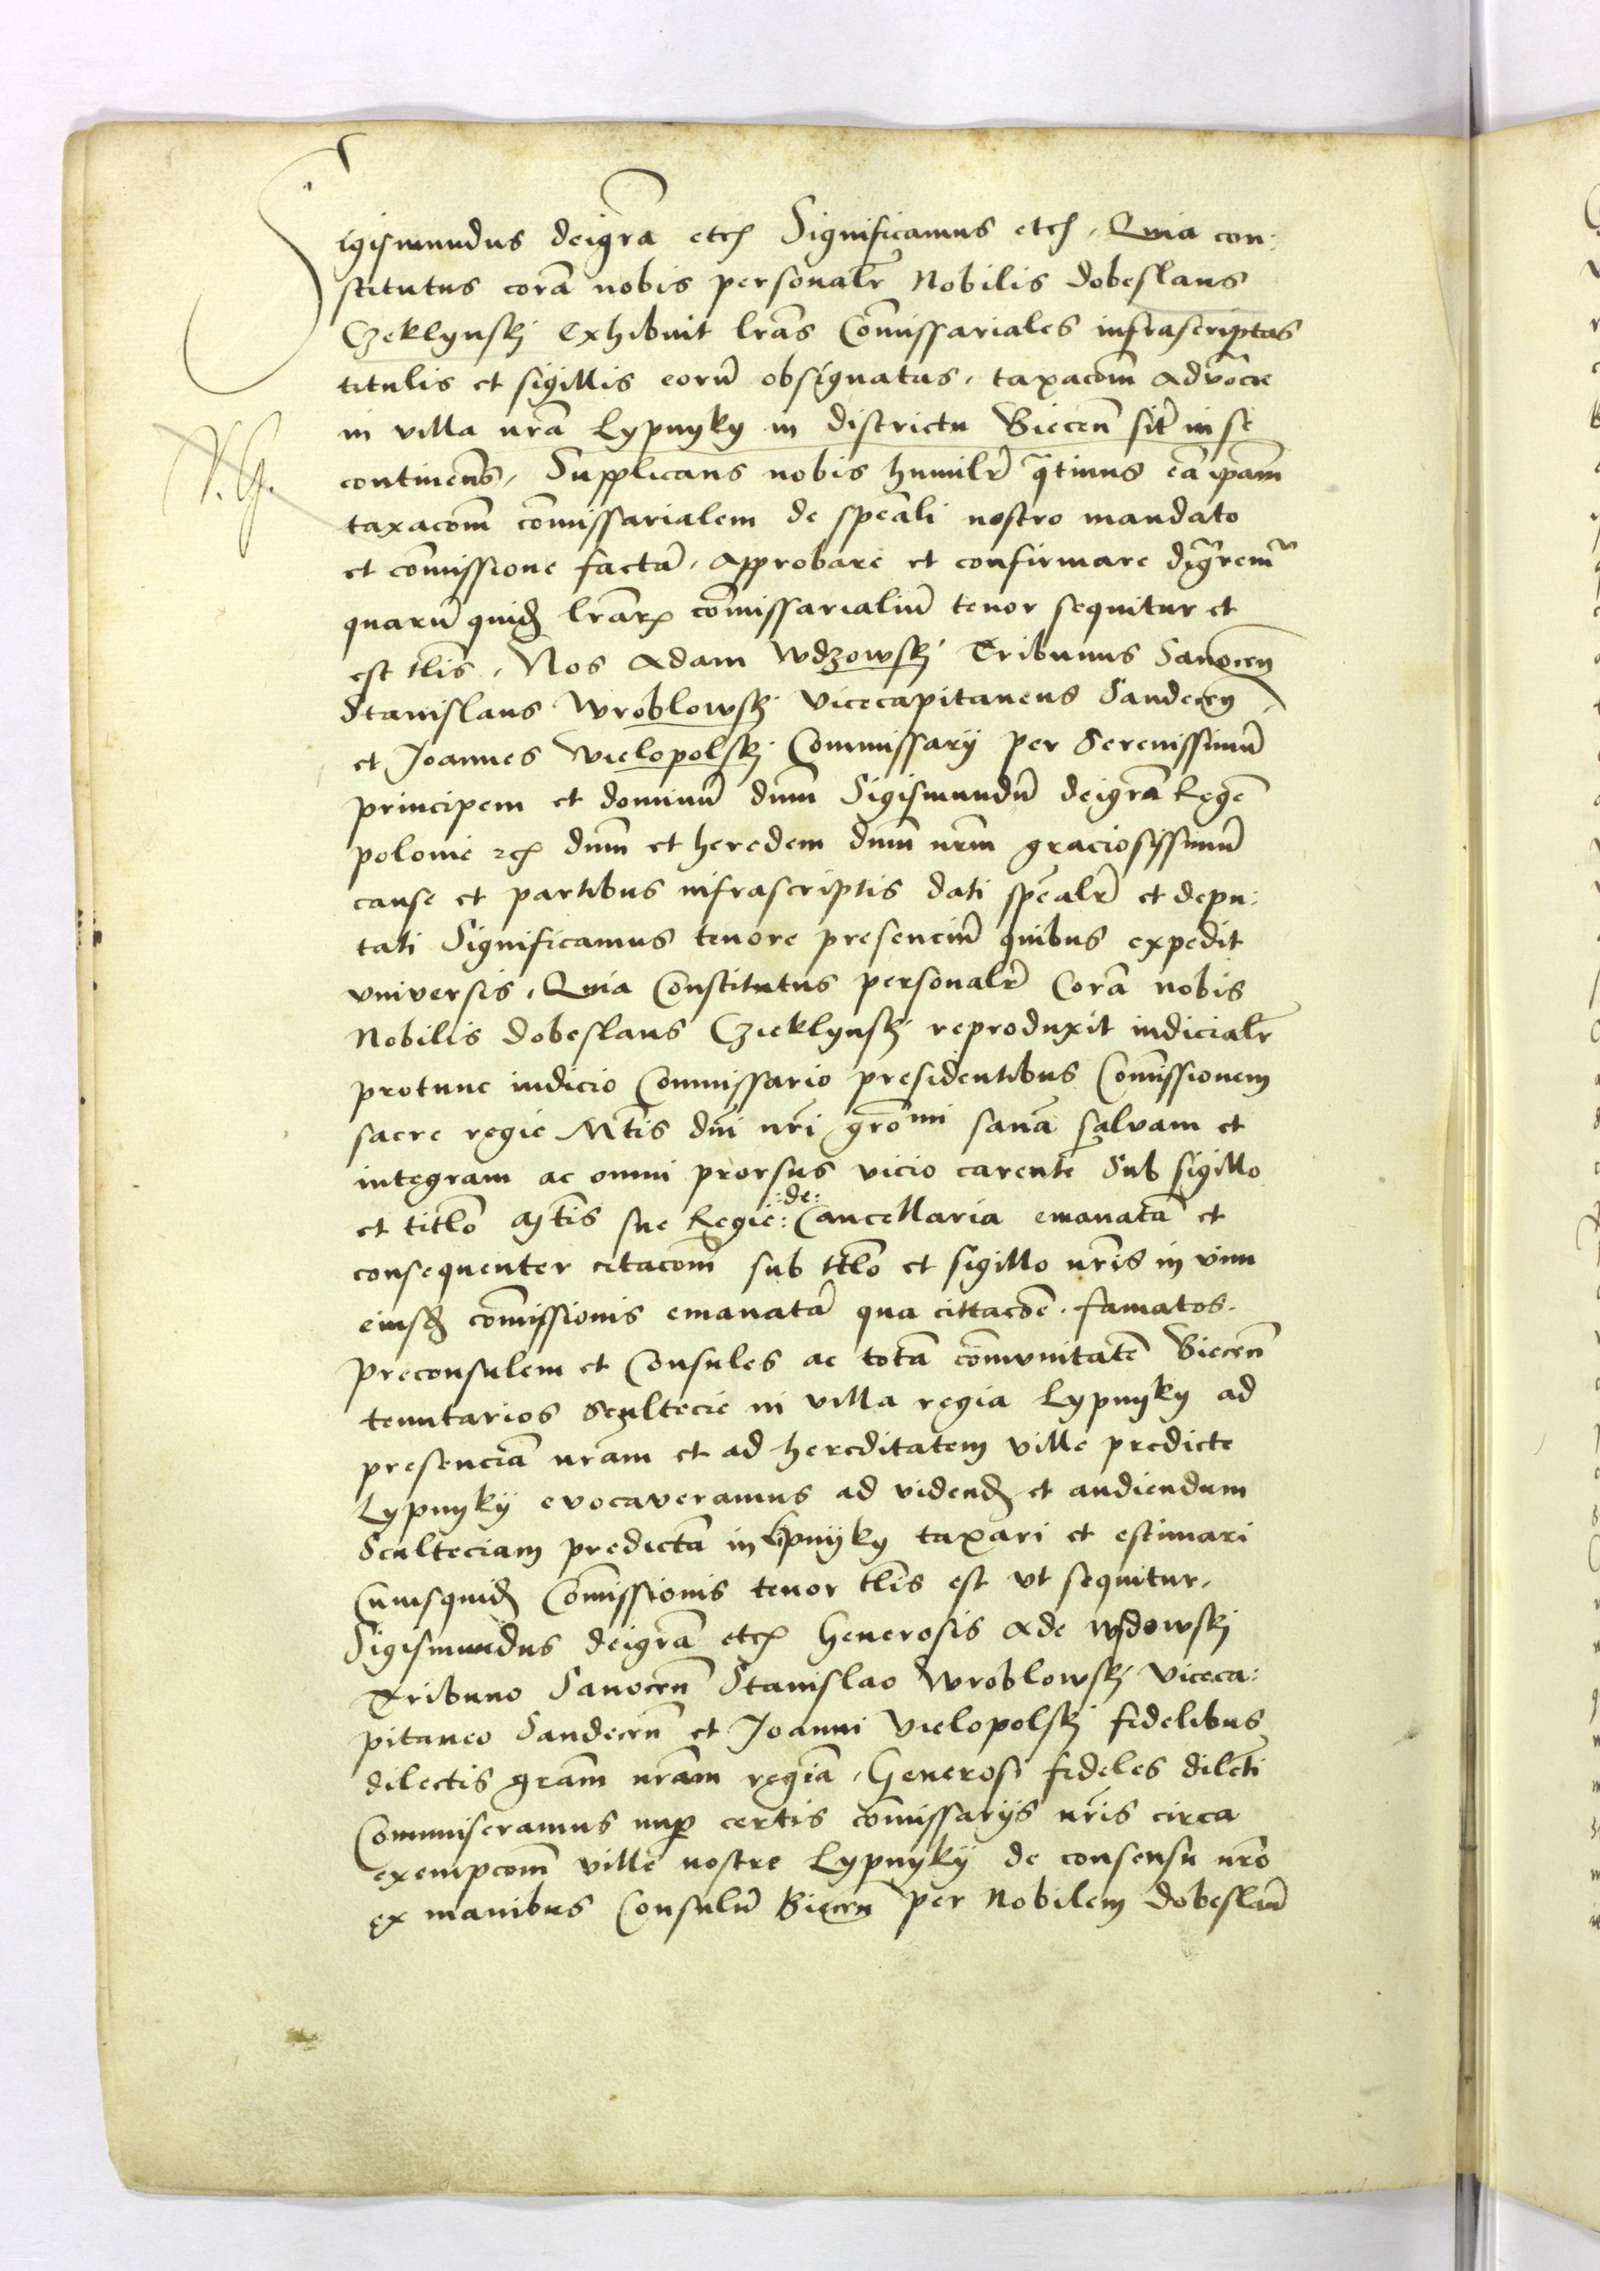 Sigismundus deigrã etc̃ Significamus etc̃. Quia con:
stitutus corã nobis personalr̃ Nobilis dobeslaus
Czeklynskj Exhibuit lrãs Com̃issariales infrascriptas
titulis et sigillis eorũ obsignatas, taxacom̃ aduocie
in villa nrã Lypnyky in districtu Biecen̄ sit̃ in se
continen̄s, Supplicans nobis humilr̃ q̃tinus eã ip̃am
taxacom̃ com̃issarialem de speãli nostro mandato
et com̃issione factã, approbare et confirmare dig̃rem̃
quarũ quid̃ lrãrꝝ com̃issarialiũ tenor sequitur et
est tlis̃, Nos Adam Wdzowskj Tribunus Sanocen̄
Stanislaus Wroblowskj vicecapitaneus Sandecen̄
et Joannes Wielopolskj Commissarij per Serenissimũ
principem et dominũ dnm̃ Sigismundũ deigrã Regẽ
polonie etc̃ dnm̃ et heredem dnm̃ nrm̃ graciosissimũ
cause et partibus infrascriptis dati speãlr̃ et depu:
tati Significamus tenore presenciũ quibus expedit
vniversis, Quia Constitutus personalr̃ Corã nobis
Nobilis dobeslaus Czieklynskj reproduxit iudicialr̃
protunc iudicio Commissario presidentibus Com̃issionem
sacre regie Mt̃is dnĩ nrĩ gro᷉mi sanã saluam et
integram ac omni prorsus vicio carentẽ Sub sigillo
et titlõ Mt̃is sue Regie :de: Cancellaria emanatã et
consequenter citacom̃ sub ttlõ et sigillo nrĩs in vim
eiusd̃ com̃issionis emanatã qua cittacõe, famatos,
preconsulem et Consules ac totã com̃vnitatẽ Biecen̄
tenutarios scultecie in villa regia Lypnyky ad
presenciã nrãm et ad hereditatem ville predicte
Lypnykij evocaveramus ad vidend̃ et audiendum
Sculteciam predictã in Lypnijky taxari et estimari
Cuiusquid̃ Com̃issionis tenor tlis̃ est vt sequitur,
Sigismundus deigrã etc̃ Generosis Ade Wsdowskj
Tribuno Sanocen̄ Stanislao Wroblowskj Viceca:
pitaneo Sandecen̄ et Joanni Vielopolskj fidelibus
dilectis grãm nrãm regiã, Generosi fideles dilecti
Commiseramus nup̱ certis com̃issarijs nrĩs circa
exempcom̃ ville nostre Lypnykij de consensu nrõ
ex manibus Consulũ Biecen̄ per Nobilem dobeslaũ